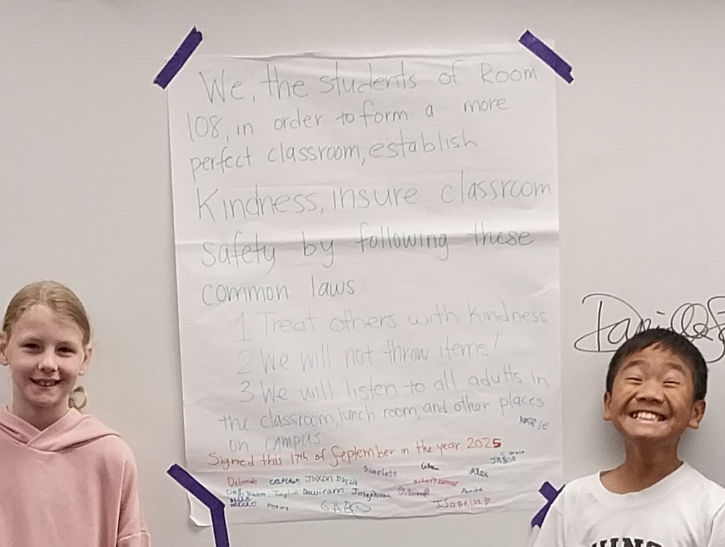 We, the students of Room
108, in order to form a more
perfect classroom, establish
Kindness, insure classroom
safety by following these
common laws
1 Treat others with kindness
2 We will not throw items!
3 We will listen to all adults in
the classroom, lunch room, and other places
on campus
Signed this 17th of September in the year 2025
Scarlett Alex
Deborah carter Jaxon
Josephine
GABO Isabella